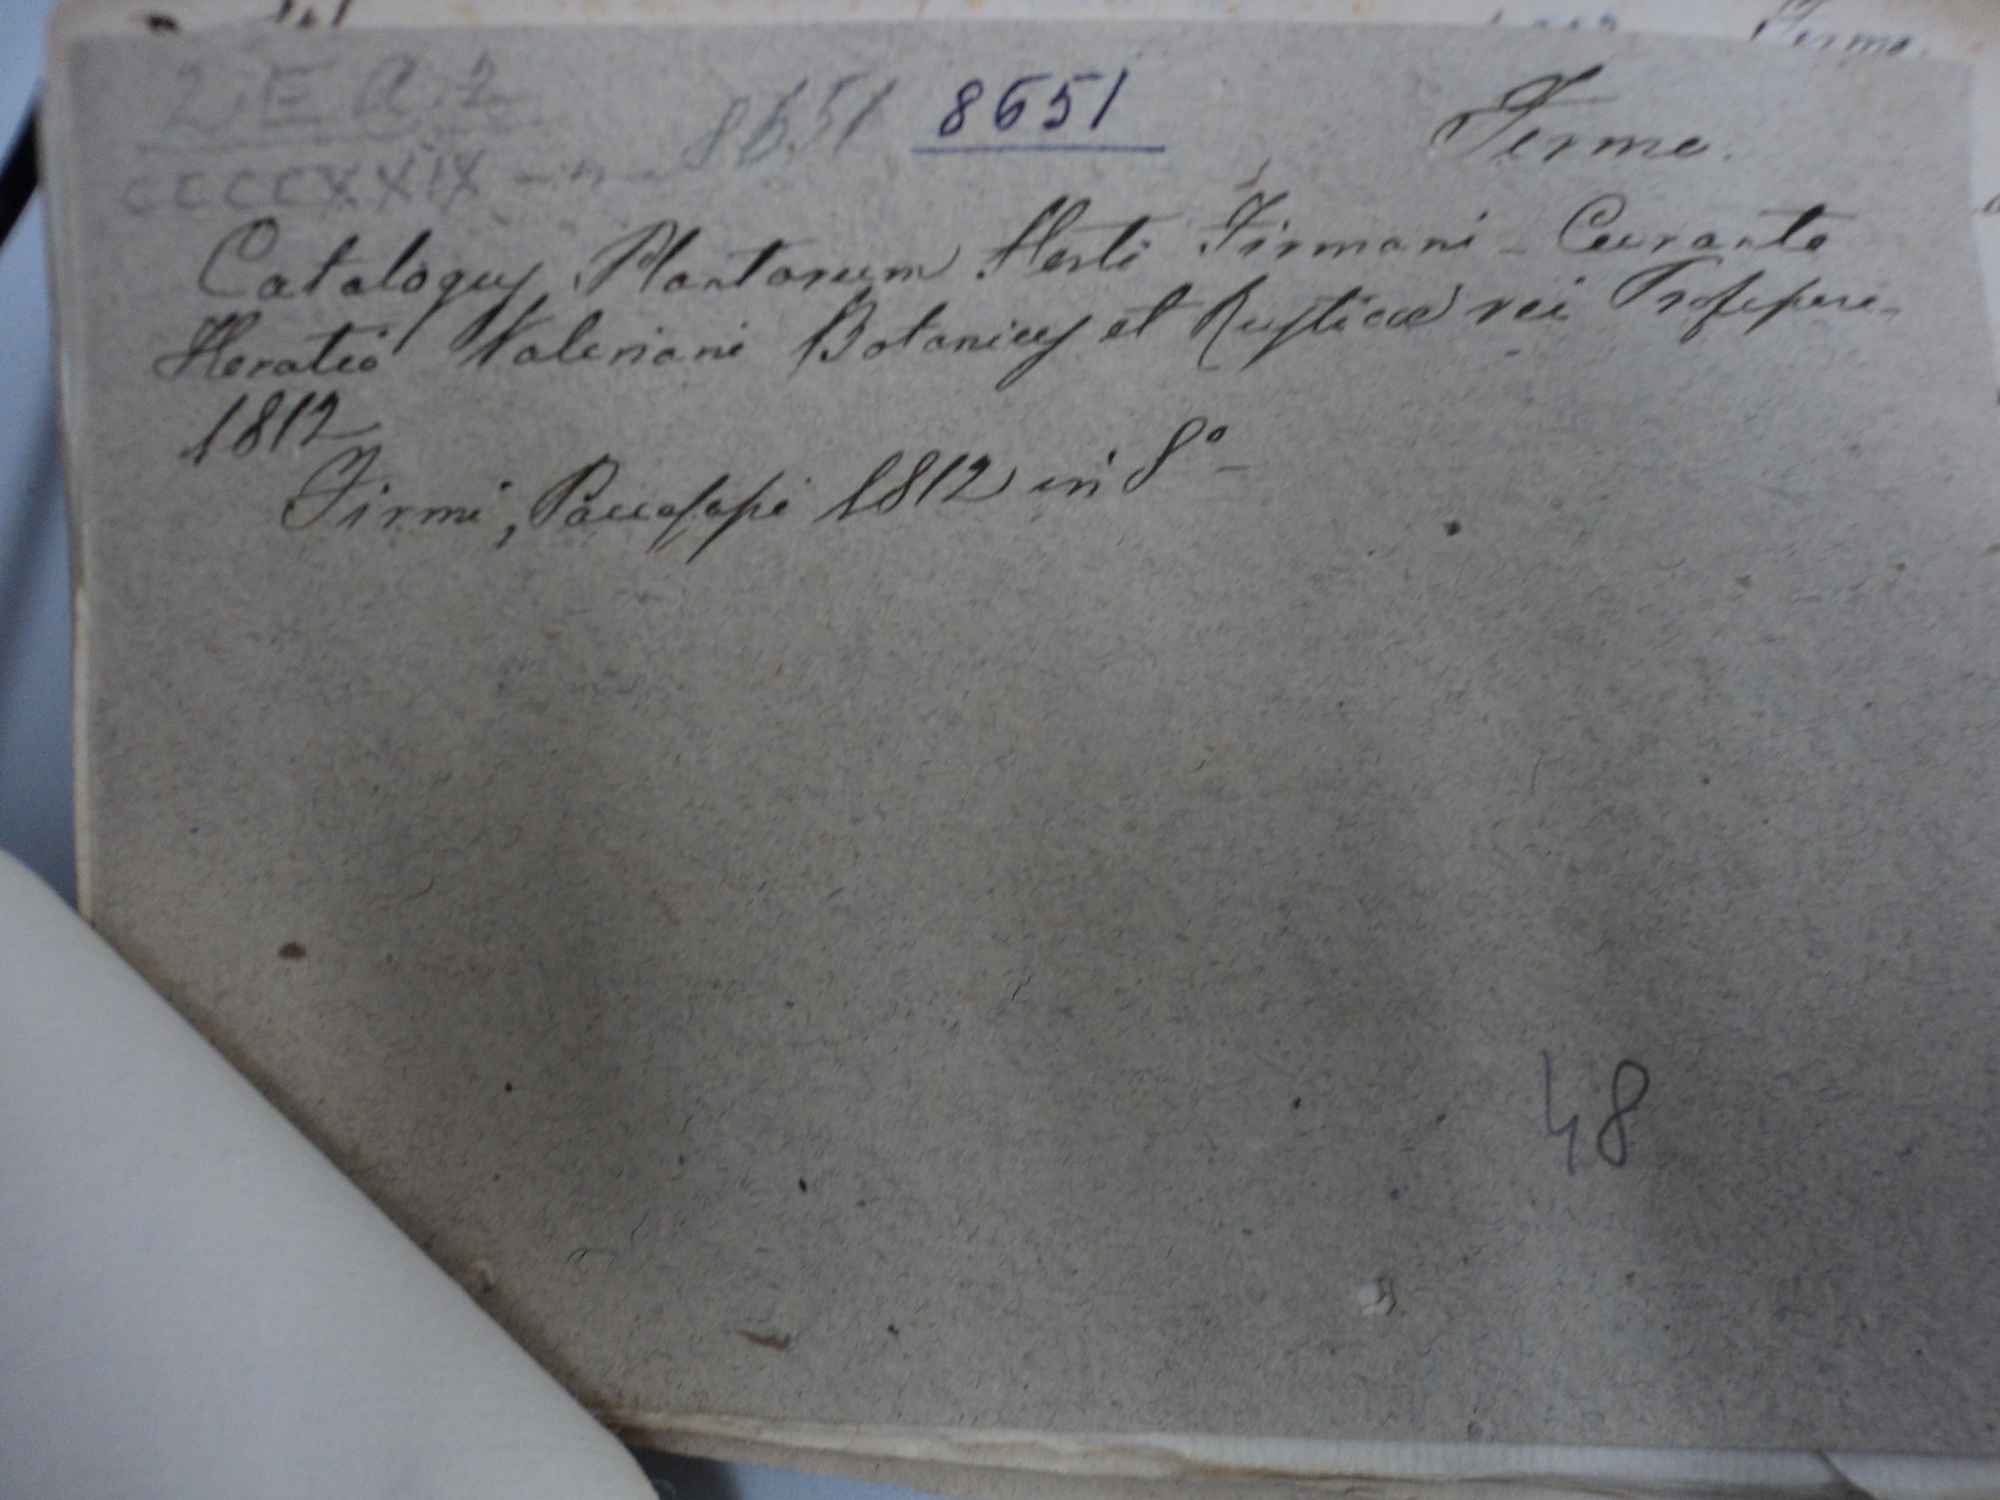 2. E A. 2
8651 8651 Fermo.
CCCCXXIX - n -
Catalogus Plantarum Horti Firmani - Curante
Horatio Valeriani Botanices et Rusticae rei Professore -
1812
Firmi, Paccasassi 1812 in 8°-
48
Fermo.